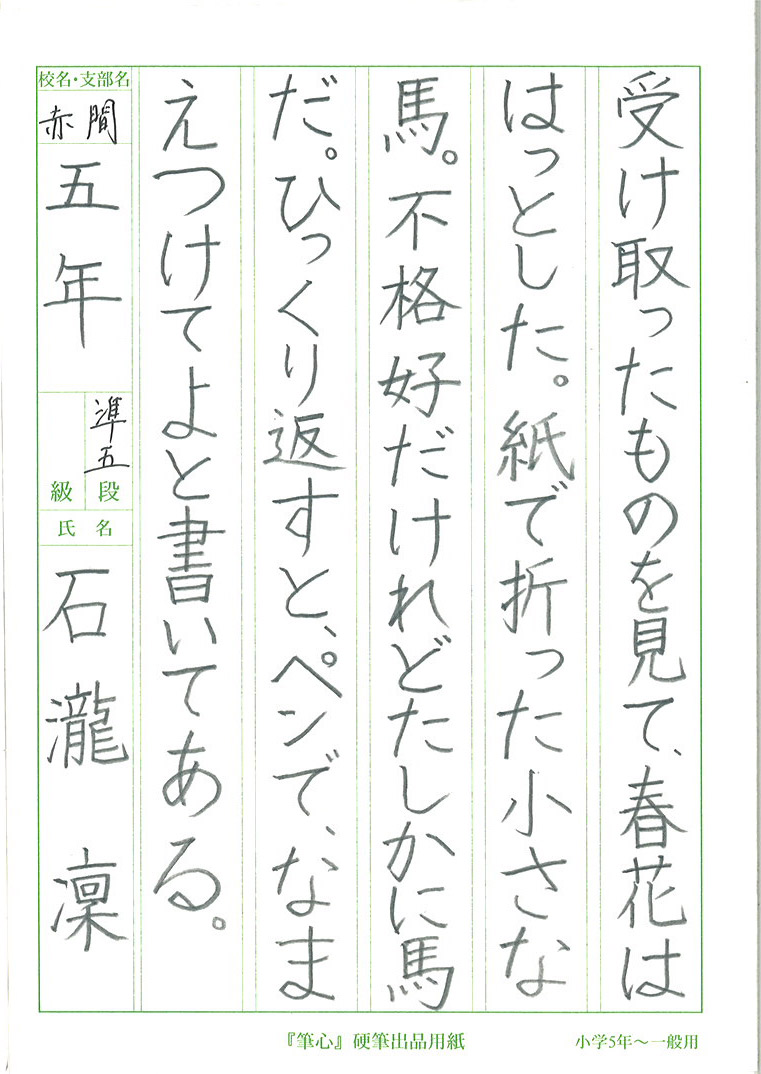 受け取ったものを見て、春花は
はっとした。紙で折った小さな
馬。不格好だけれどたしかに馬
だ。ひっくり返すと、ペンで、なま
えつけてよと書いてある。
校名・支部名
赤間
五年
準五
級 段
氏 名
石瀧 凜
『筆心』硬筆出品用紙
小学5年～一般用